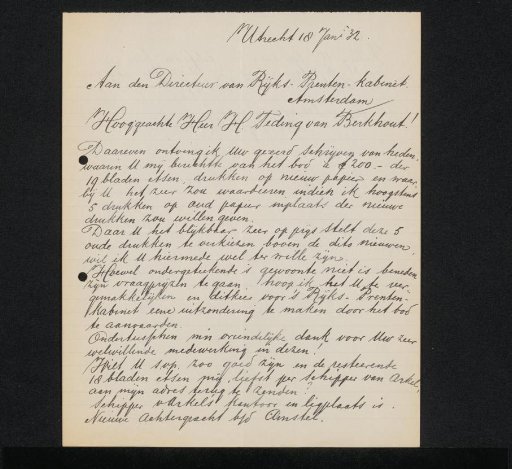 Utrecht 18 Jan: 32.
Aan den Directeur van Rijks-Prenten-Kabinet.
Amsterdam
Hooggeachte Heer H. Teding van Berkhout!
Daareven ontving ik Uw geeerd schrijven van heden,
waarin U mij berichtte van het bod à f 200.- der
19 bladen etsen, drukken op nieuw papier en waar
bij U het zeer zou waardeeren indien ik hoogstens
5 drukken op oud papier inplaats der nieuwe
drukken zou willen geven.
Daar U het blijkbaar zeer op prijs stelt deze 5
oude drukken te verkiezen boven de dito nieuwen,
wil ik U hiermede wel ter wille zijn.
Hoewel ondergeteekende's gewoonte niet is beneden
zijn vraagprijzen te gaan, hoop ik het U te ver
gemakkelijken en ditkeer voor 's Rijks-Prenten-
Kabinet eene uitzondering te maken door het bod
te aanvaarden.
Ondertusschen mijn vriendelijke dank voor Uw zeer
welwillende medewerking in dezen!
Wilt U s.v.p. zoo goed zijn en de resteerende
18 bladen etsen mij liefst per schipper van Arkel,
aan mijn adres terug te zenden!
Schipper v Arkel's kantoor en ligplaats is
Nieuwe Achtergracht bij d' Amstel.